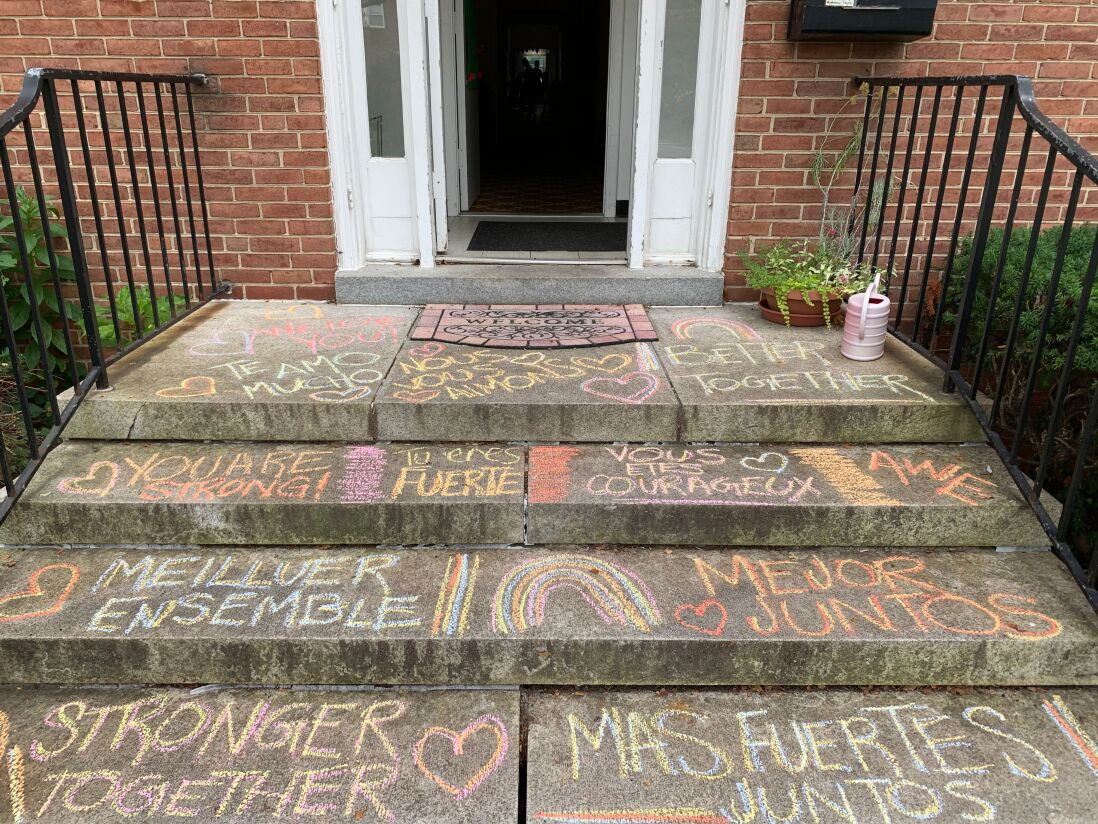 WELCOME
YOU!
TE AMO
MUCHO
NOUS
VOUS
AIMONS
BETTER
TOGETHER
YOU ARE
STRONG!
Tu eres
FUERTE
VOUS
ETES
COURAGEUX
AWE
MEILLUER
ENSEMBLE
MEJOR
JUNTOS
STRONGER
TOGETHER
MAS FUERTES
JUNTOS